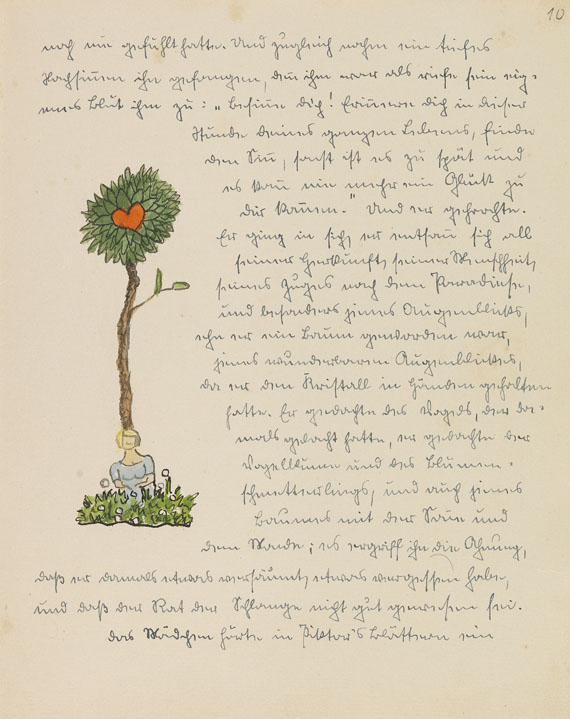 10
noch nie gefühlt hatte. Und zugleich nahm ein tiefes
Nachsinnen ihn gefangen, dem ihm war als riefe sein eig-
enes Blut ihm zu: „Besinne dich! Erinnere dich in dieser
Stunde deines ganzen Lebens, finde
den Sinn, sonst ist es zu spät und
es kann nie mehr ein Glück zu
dir kommen.“ Und er gehorchte.
Er ging in sich, er entsann sich all
seiner Herkunft, seiner Menschheit,
seines Zuges nach dem Paradiese,
und besonders jenes Augenblicks,
ehe er ein Baum geworden war,
jenes wunderbaren Augenblickes,
da er den Kristall in Händen gehalten
hatte. Er gedachte des Vogels, der da-
mals gelacht hatte, er gedachte der
Vogelblume und des Blumen-
schmetterlings, und auch jenes
Baumes mit der Sonne und
dem Monde; es ergriff ihn die Ahnung,
daß er damals etwas versäumt, etwas vergessen habe,
und daß der Rat der Schlange nicht gut gewesen sei.
Das Mädchen hörte in Piktor's Blättern ein